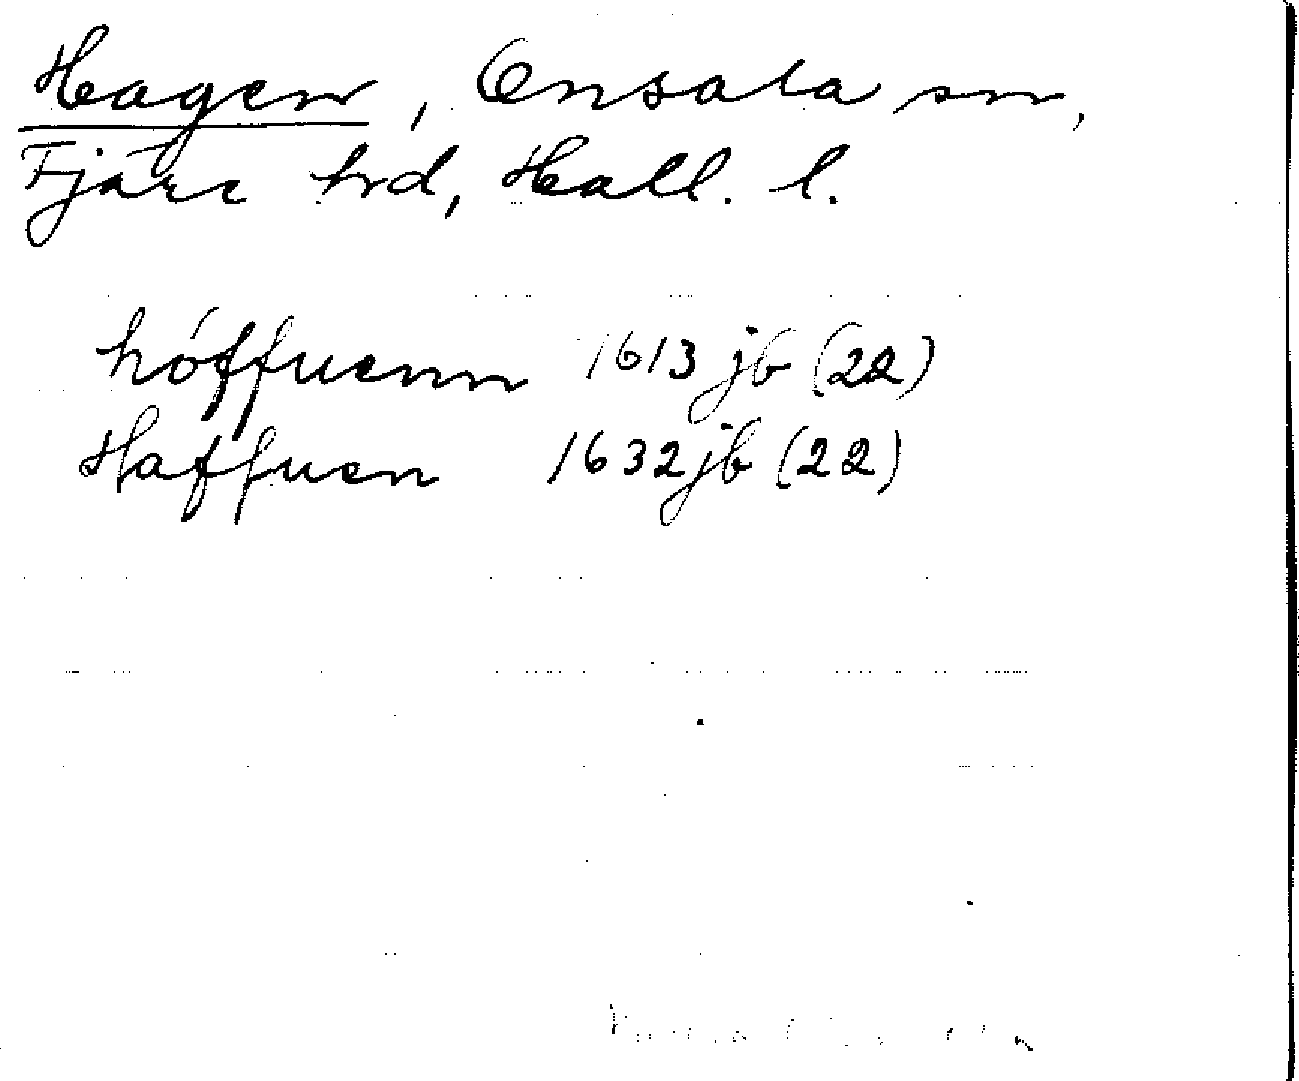 Hagen, Onsala sn,
Fjäre hrd, Hall. l.
hóffuenn 1613 jb (22)
Haffuen 1632 jb (22)